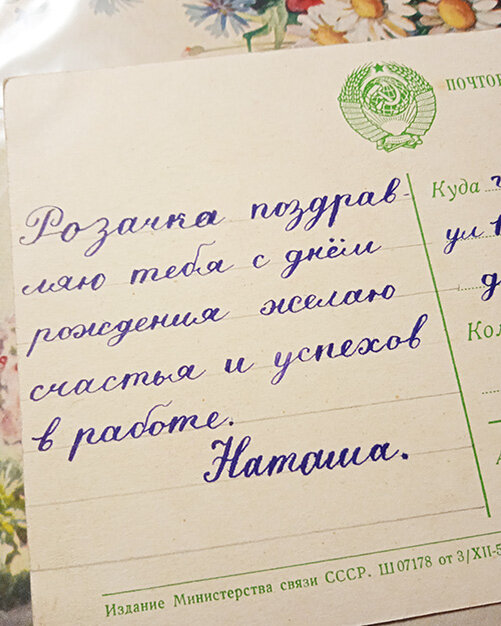 Розачка поздрав-
ляю тебя с днём
рождения желаю
счастья и успехов
в работе.
Наташа.
ПОЧТО
Куда г
ул
д
Ко
Издание Министерства связи СССР. Ш 07178 от 3/XII-5